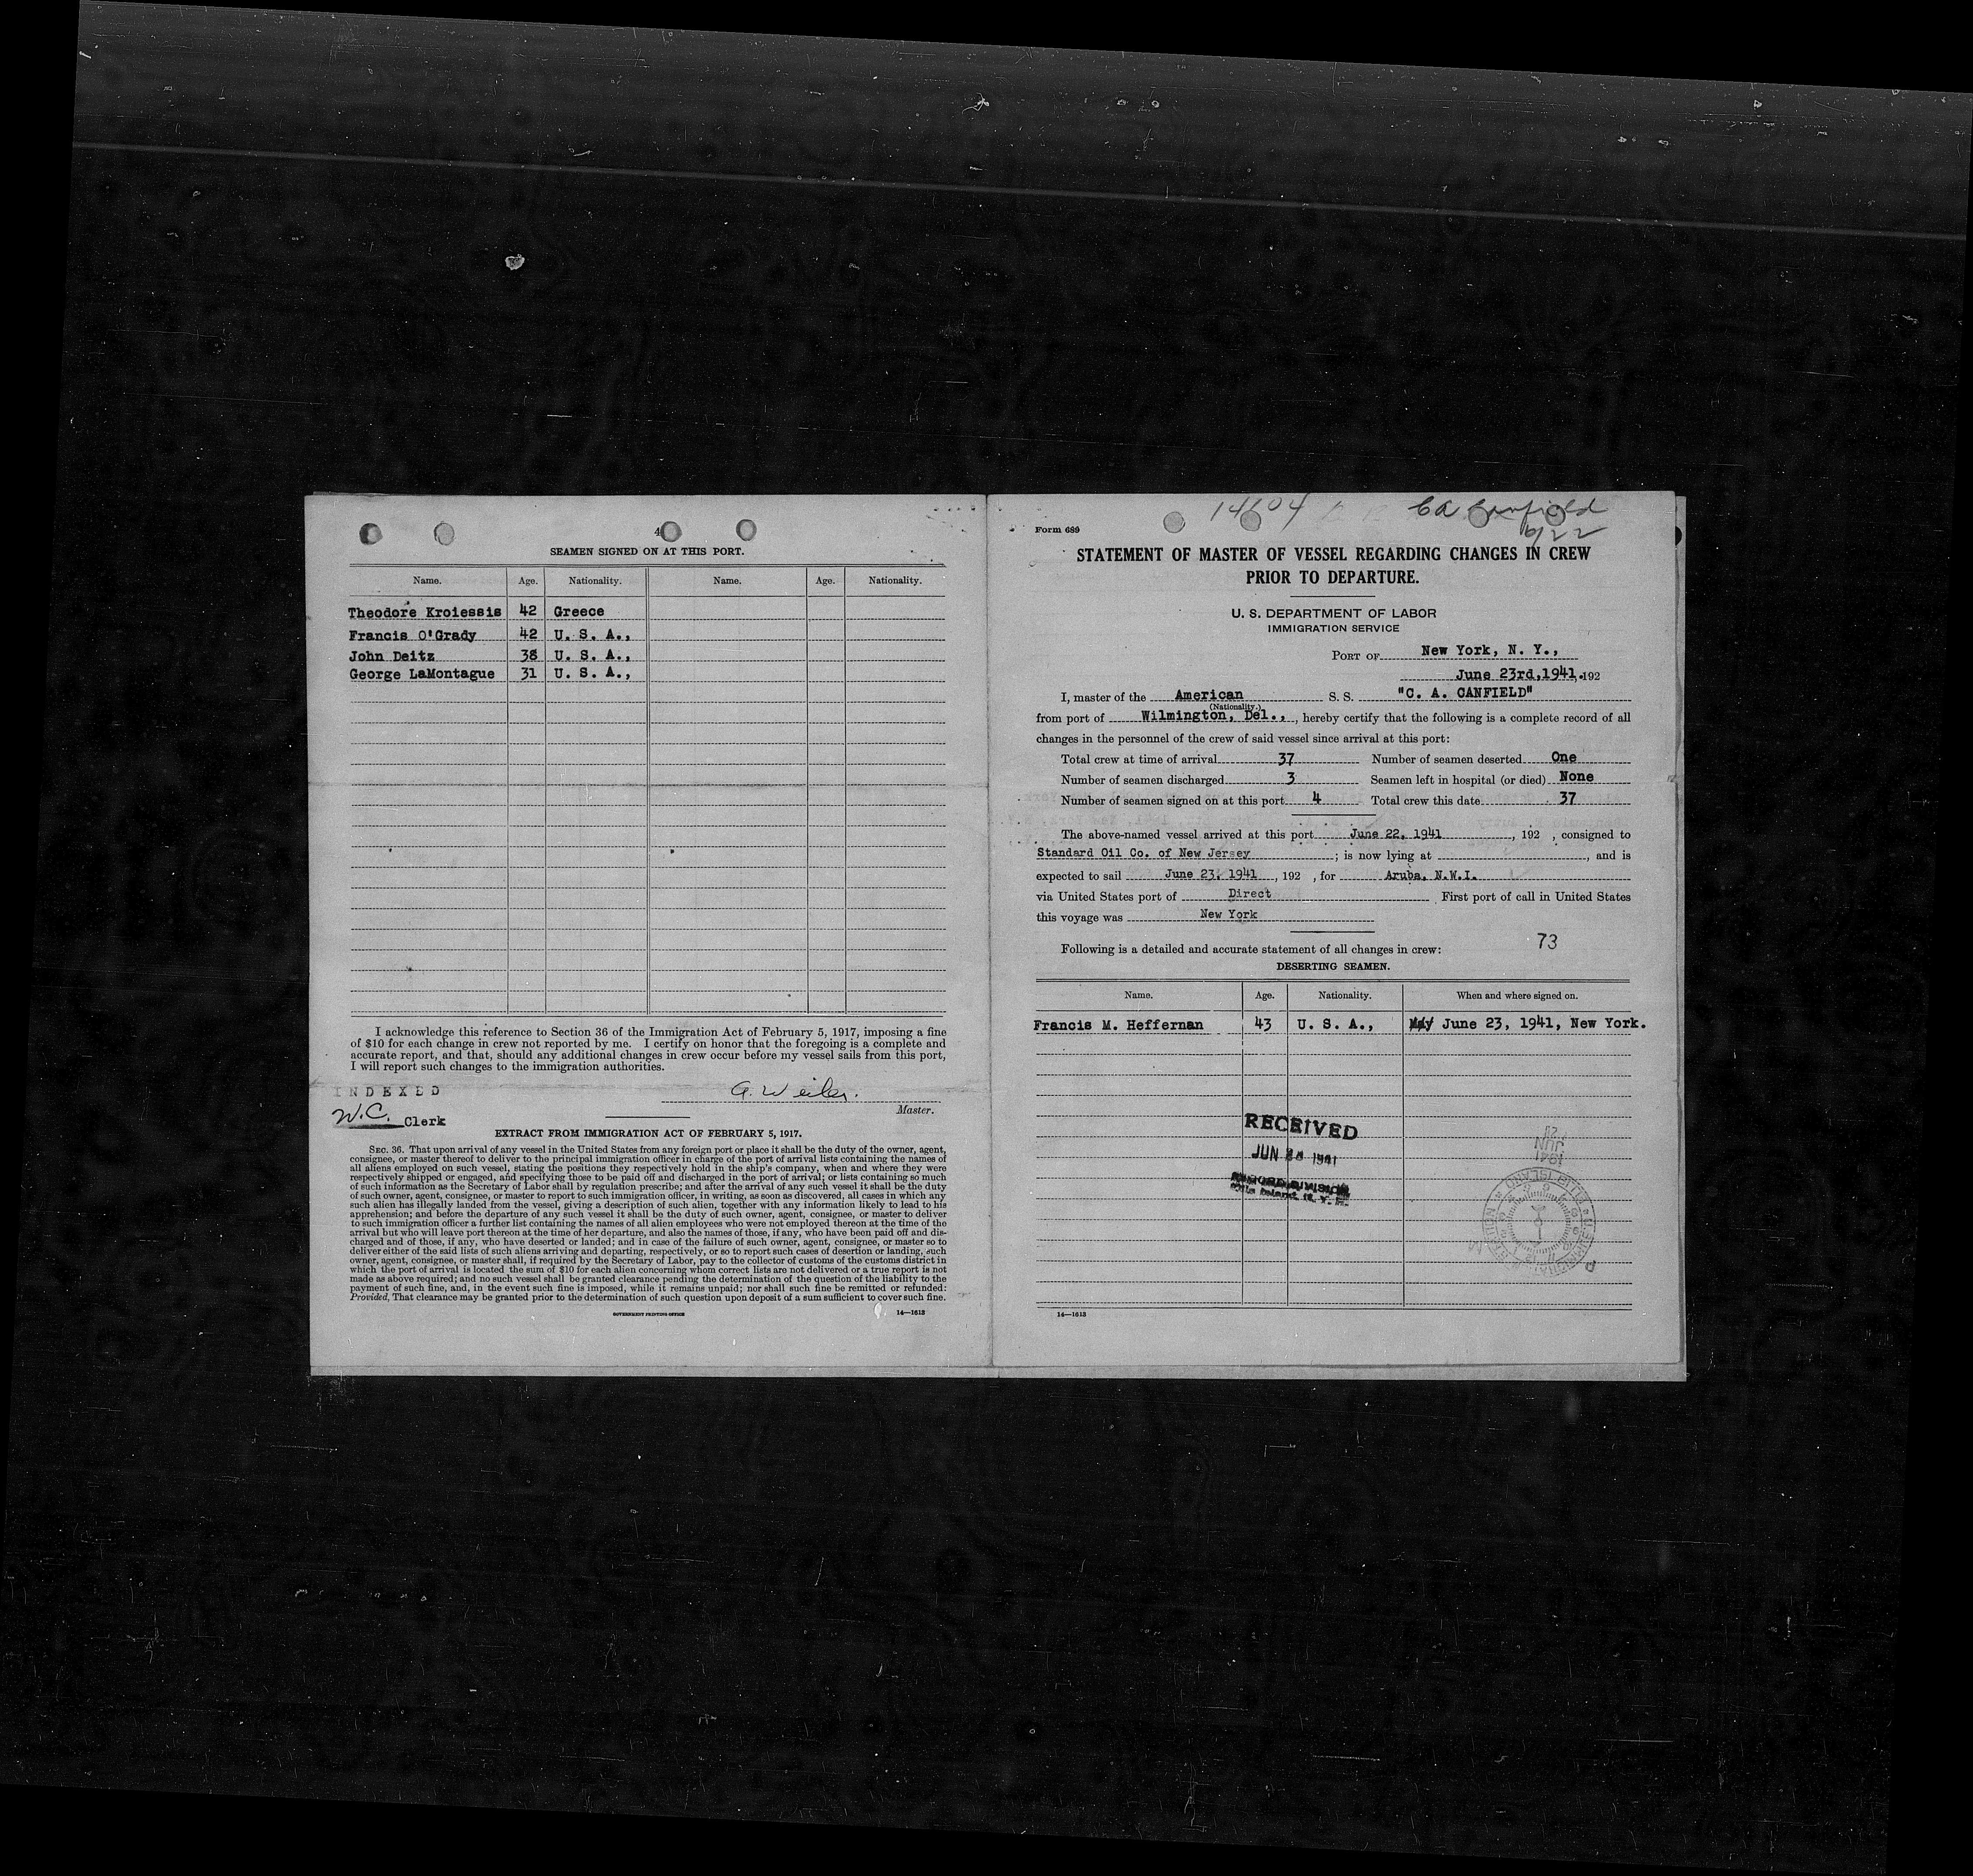 4
SEAMEN SIGNED ON AT THIS PORT.
Name. Age. Nationality. Name. Age. Nationality.
Theodore Kroiessis 42 Greece
Francis O'Grady 42 U. S. A.,
John Deitz 38 U. S. A.,
George LaMontague 31 U. S. A.,
I acknowledge this reference to Section 36 of the Immigration Act of February 5, 1917, imposing a fine
of $10 for each change in crew not reported by me. I certify on honor that the foregoing is a complete and
accurate report, and that, should any additional changes in crew occur before my vessel sails from this port,
I will report such changes to the immigration authorities.
INDEXED
W.C. Clerk
A. Weiler.
Master.
EXTRACT FROM IMMIGRATION ACT OF FEBRUARY 5, 1917.
SEC. 36. That upon arrival of any vessel in the United States from any foreign port or place it shall be the duty of the owner, agent,
consignee, or master thereof to deliver to the principal immigration officer in charge of the port of arrival lists containing the names of
all aliens employed on such vessel, stating the positions they respectively hold in the ship's company, when and where they were
respectively shipped or engaged, and specifying those to be paid off and discharged in the port of arrival; or lists containing so much
of such information as the Secretary of Labor shall by regulation prescribe; and after the arrival of any such vessel it shall be the duty
of such owner, agent, consignee, or master to report to such immigration officer, in writing, as soon as discovered, all cases in which any
such alien has illegally landed from the vessel, giving a description of such alien, together with any information likely to lead to his
apprehension; and before the departure of any such vessel it shall be the duty of such owner, agent, consignee, or master to deliver
to such immigration officer a further list containing the names of all alien employees who were not employed thereon at the time of the
arrival but who will leave port thereon at the time of her departure, and also the names of those, if any, who have been paid off and dis-
charged and of those, if any, who have deserted or landed; and in case of the failure of such owner, agent, consignee, or master so to
deliver either of the said lists of such aliens arriving and departing, respectively, or so to report such cases of desertion or landing, such
owner, agent, consignee, or master shall, if required by the Secretary of Labor, pay to the collector of customs of the customs district in
which the port of arrival is located the sum of $10 for each alien concerning whom correct lists are not delivered or a true report is not
made as above required; and no such vessel shall be granted clearance pending the determination of the question of the liability to the
payment of such fine, and, in the event such fine is imposed, while it remains unpaid; nor shall such fine be remitted or refunded:
Provided, That clearance may be granted prior to the determination of such question upon deposit of a sum sufficient to cover such fine.
GOVERNMENT PRINTING OFFICE 14—1613
14604 CA Canfield
6/22
Form 689
STATEMENT OF MASTER OF VESSEL REGARDING CHANGES IN CREW
PRIOR TO DEPARTURE.
U. S. DEPARTMENT OF LABOR
IMMIGRATION SERVICE
PORT OF New York, N. Y.,
June 23rd,1941, 192
I, master of the American S. S. "C. A. CANFIELD"
(Nationality.)
from port of Wilmington, Del., , hereby certify that the following is a complete record of all
changes in the personnel of the crew of said vessel since arrival at this port:
Total crew at time of arrival 37 Number of seamen deserted One
Number of seamen discharged 3 Seamen left in hospital (or died) None
Number of seamen signed on at this port 4 Total crew this date 37
The above-named vessel arrived at this port June 22, 1941 , 192 , consigned to
Standard Oil Co. of New Jersey ; is now lying at , and is
expected to sail June 23, 1941 , 192 , for Aruba, N.W.I.
via United States port of Direct First port of call in United States
this voyage was New York
73
Following is a detailed and accurate statement of all changes in crew:
DESERTING SEAMEN.
Name. Age. Nationality. When and where signed on.
Francis M. Heffernan 43 U. S. A., May June 23, 1941, New York.
RECEIVED
JUN 1941
RECORD DIVISION
Ellis Island, N. Y. H.
JUN
1941
ELLIS ISLAND
14—1613